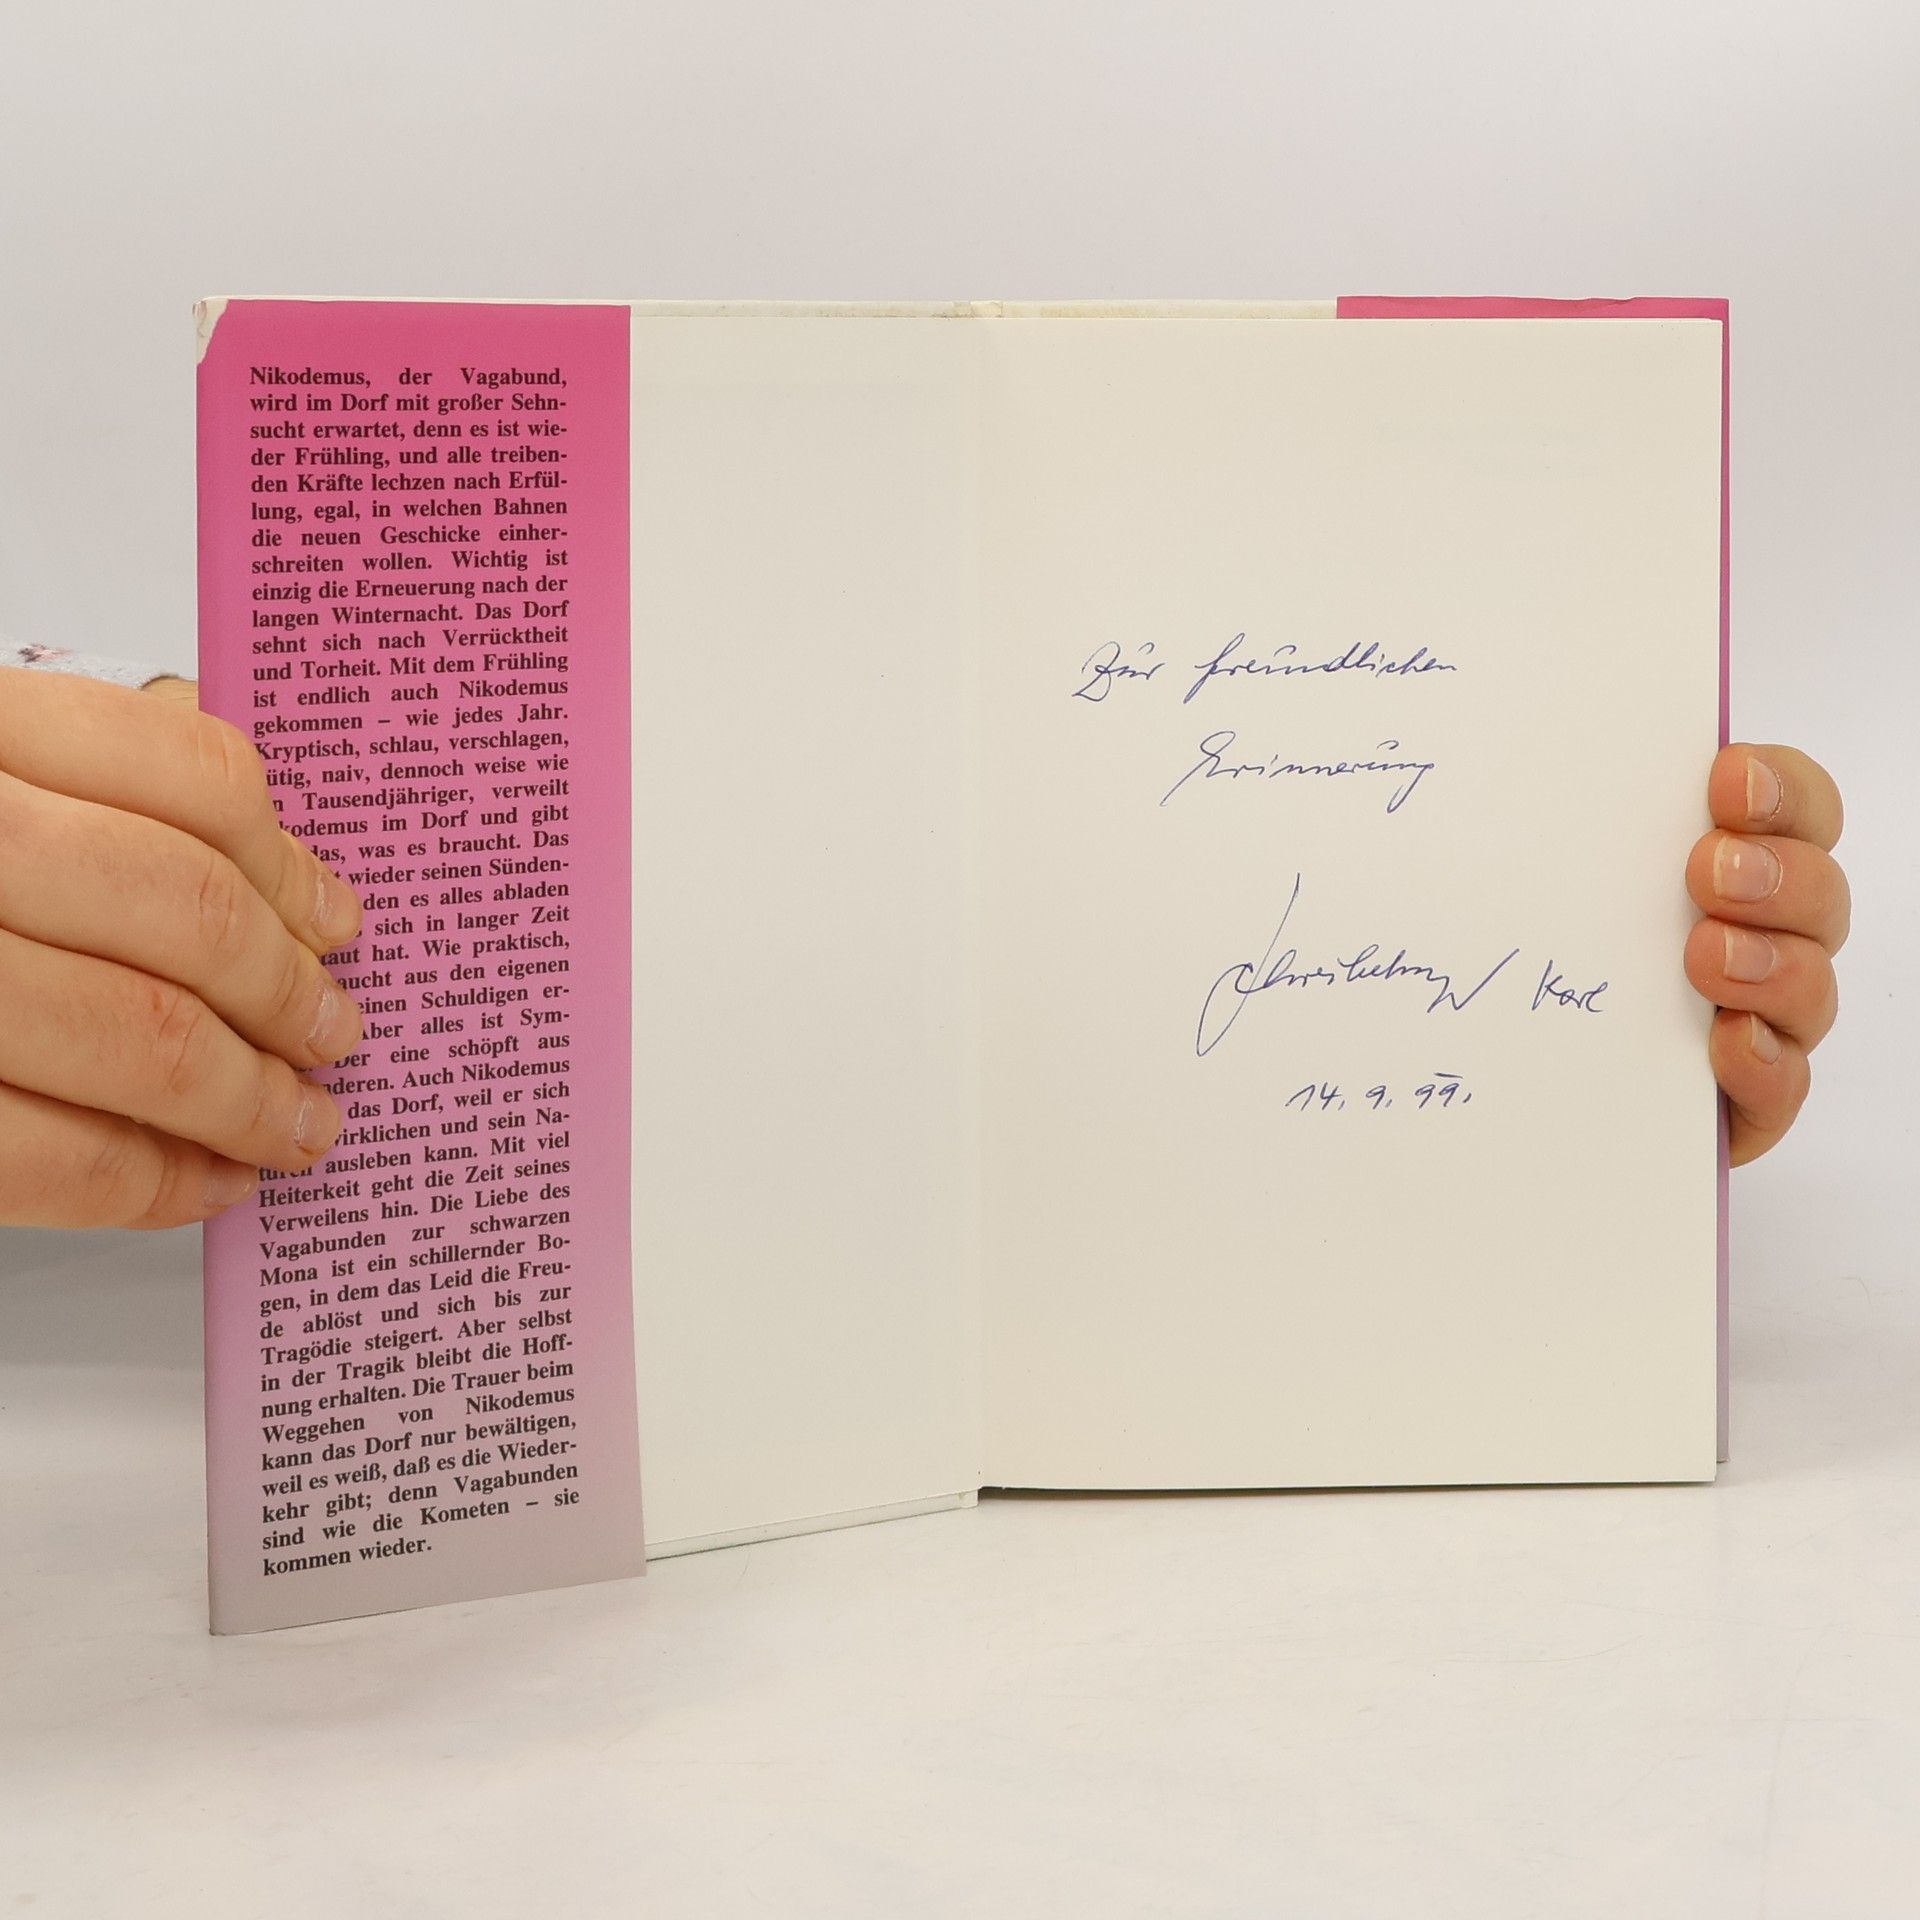 Nikodemus, der Vagabund,
wird im Dorf mit großer Sehn-
sucht erwartet, denn es ist wie-
der Frühling, und alle treiben-
den Kräfte lechzen nach Erfül-
lung, egal, in welchen Bahnen
die neuen Geschicke einher-
schreiten wollen. Wichtig ist
einzig die Erneuerung nach der
langen Winternacht. Das Dorf
sehnt sich nach Verrücktheit
und Torheit. Mit dem Frühling
ist endlich auch Nikodemus
gekommen – wie jedes Jahr.
Kryptisch, schlau, verschlagen,
ütig, naiv, dennoch weise wie
n Tausendjähriger, verweilt
kodemus im Dorf und gibt
das, was es braucht. Das
t wieder seinen Sünden-
den es alles abladen
sich in langer Zeit
taut hat. Wie praktisch,
aucht aus den eigenen
einen Schuldigen er-
Aber alles ist Sym-
Der eine schöpft aus
nderen. Auch Nikodemus
das Dorf, weil er sich
wirklichen und sein Na-
turell ausleben kann. Mit viel
Heiterkeit geht die Zeit seines
Verweilens hin. Die Liebe des
Vagabunden zur schwarzen
Mona ist ein schillernder Bo-
gen, in dem das Leid die Freu-
de ablöst und sich bis zur
Tragödie steigert. Aber selbst
in der Tragik bleibt die Hoff-
nung erhalten. Die Trauer beim
Weggehen von Nikodemus
kann das Dorf nur bewältigen,
weil es weiß, daß es die Wieder-
kehr gibt; denn Vagabunden
sind wie die Kometen – sie
kommen wieder.
Zur freundlichen
Erinnerung
Karl
14. 9. 99.